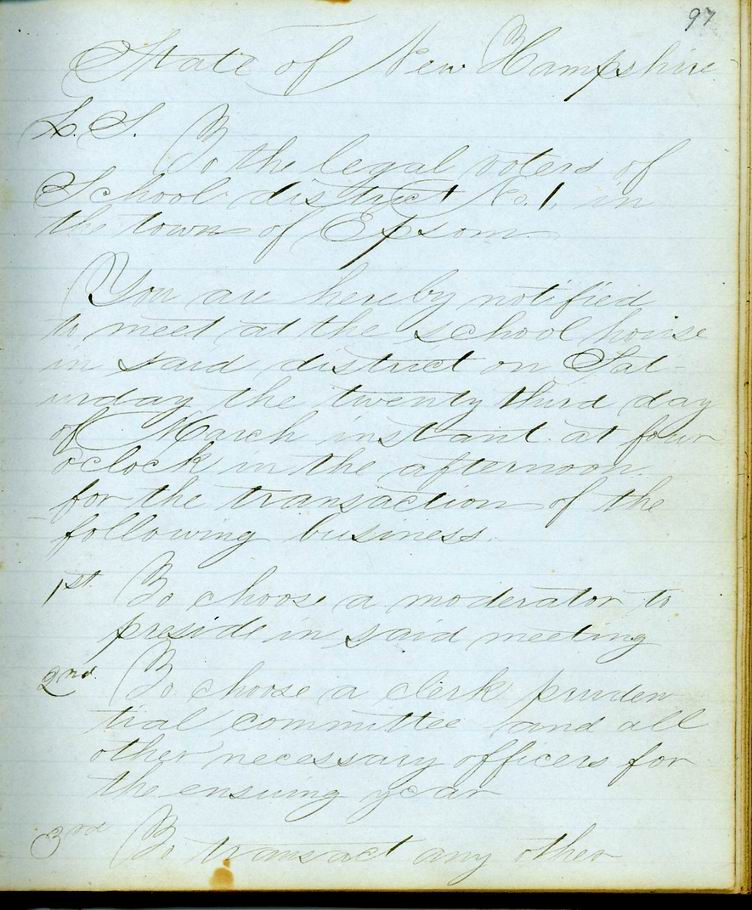 97
State of New Hampshire
L. S.
To the legal voters of
School district No. 1 in
the town of Epsom
You are hereby notified
to meet at the school house
in said district on Sat-
urday the twenty third day
of March instant at four
oclock in the afternoon
for the transaction of the
following business.
1st To choose a moderator to
preside in said meeting
2nd To choose a clerk pruden
tial committee and all
other necessary officers for
the ensuing year
3rd To transact any other